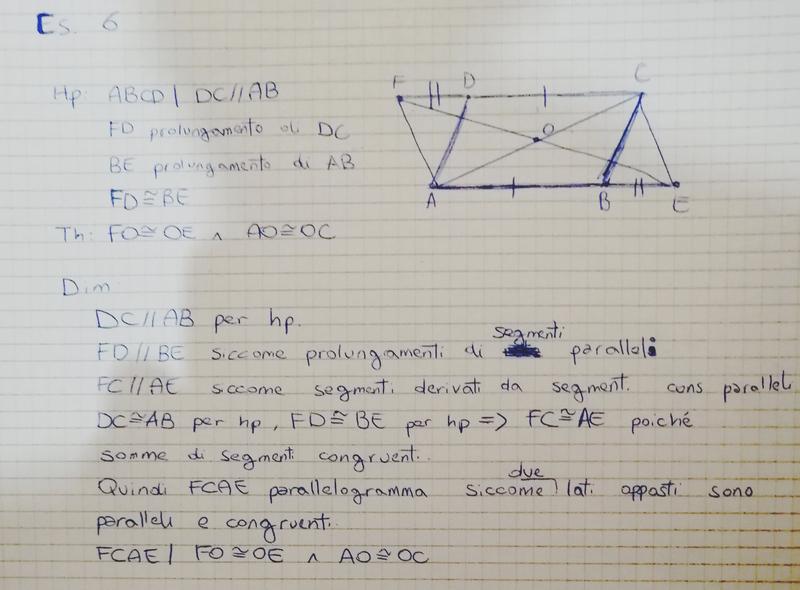 Es. 6
Hp: ABCD | DC//AB
FD prolungamento di DC
BE prolungamento di AB
FD≅BE
Th: FO≅OE ∧ AO≅OC
F D C
O
A B E
Dim
DC//AB per hp.
FD//BE siccome prolungamenti di segmenti paralleli
FC//AE siccome segmenti derivati da segment. cons paralleli
DC≅AB per hp, FD≅BE per hp => FC≅AE poiché
somme di segmenti congruenti.
Quindi FCAE parallelogramma siccome due lati opposti sono
paralleli e congruenti.
FCAE | FO≅OE ∧ AO≅OC